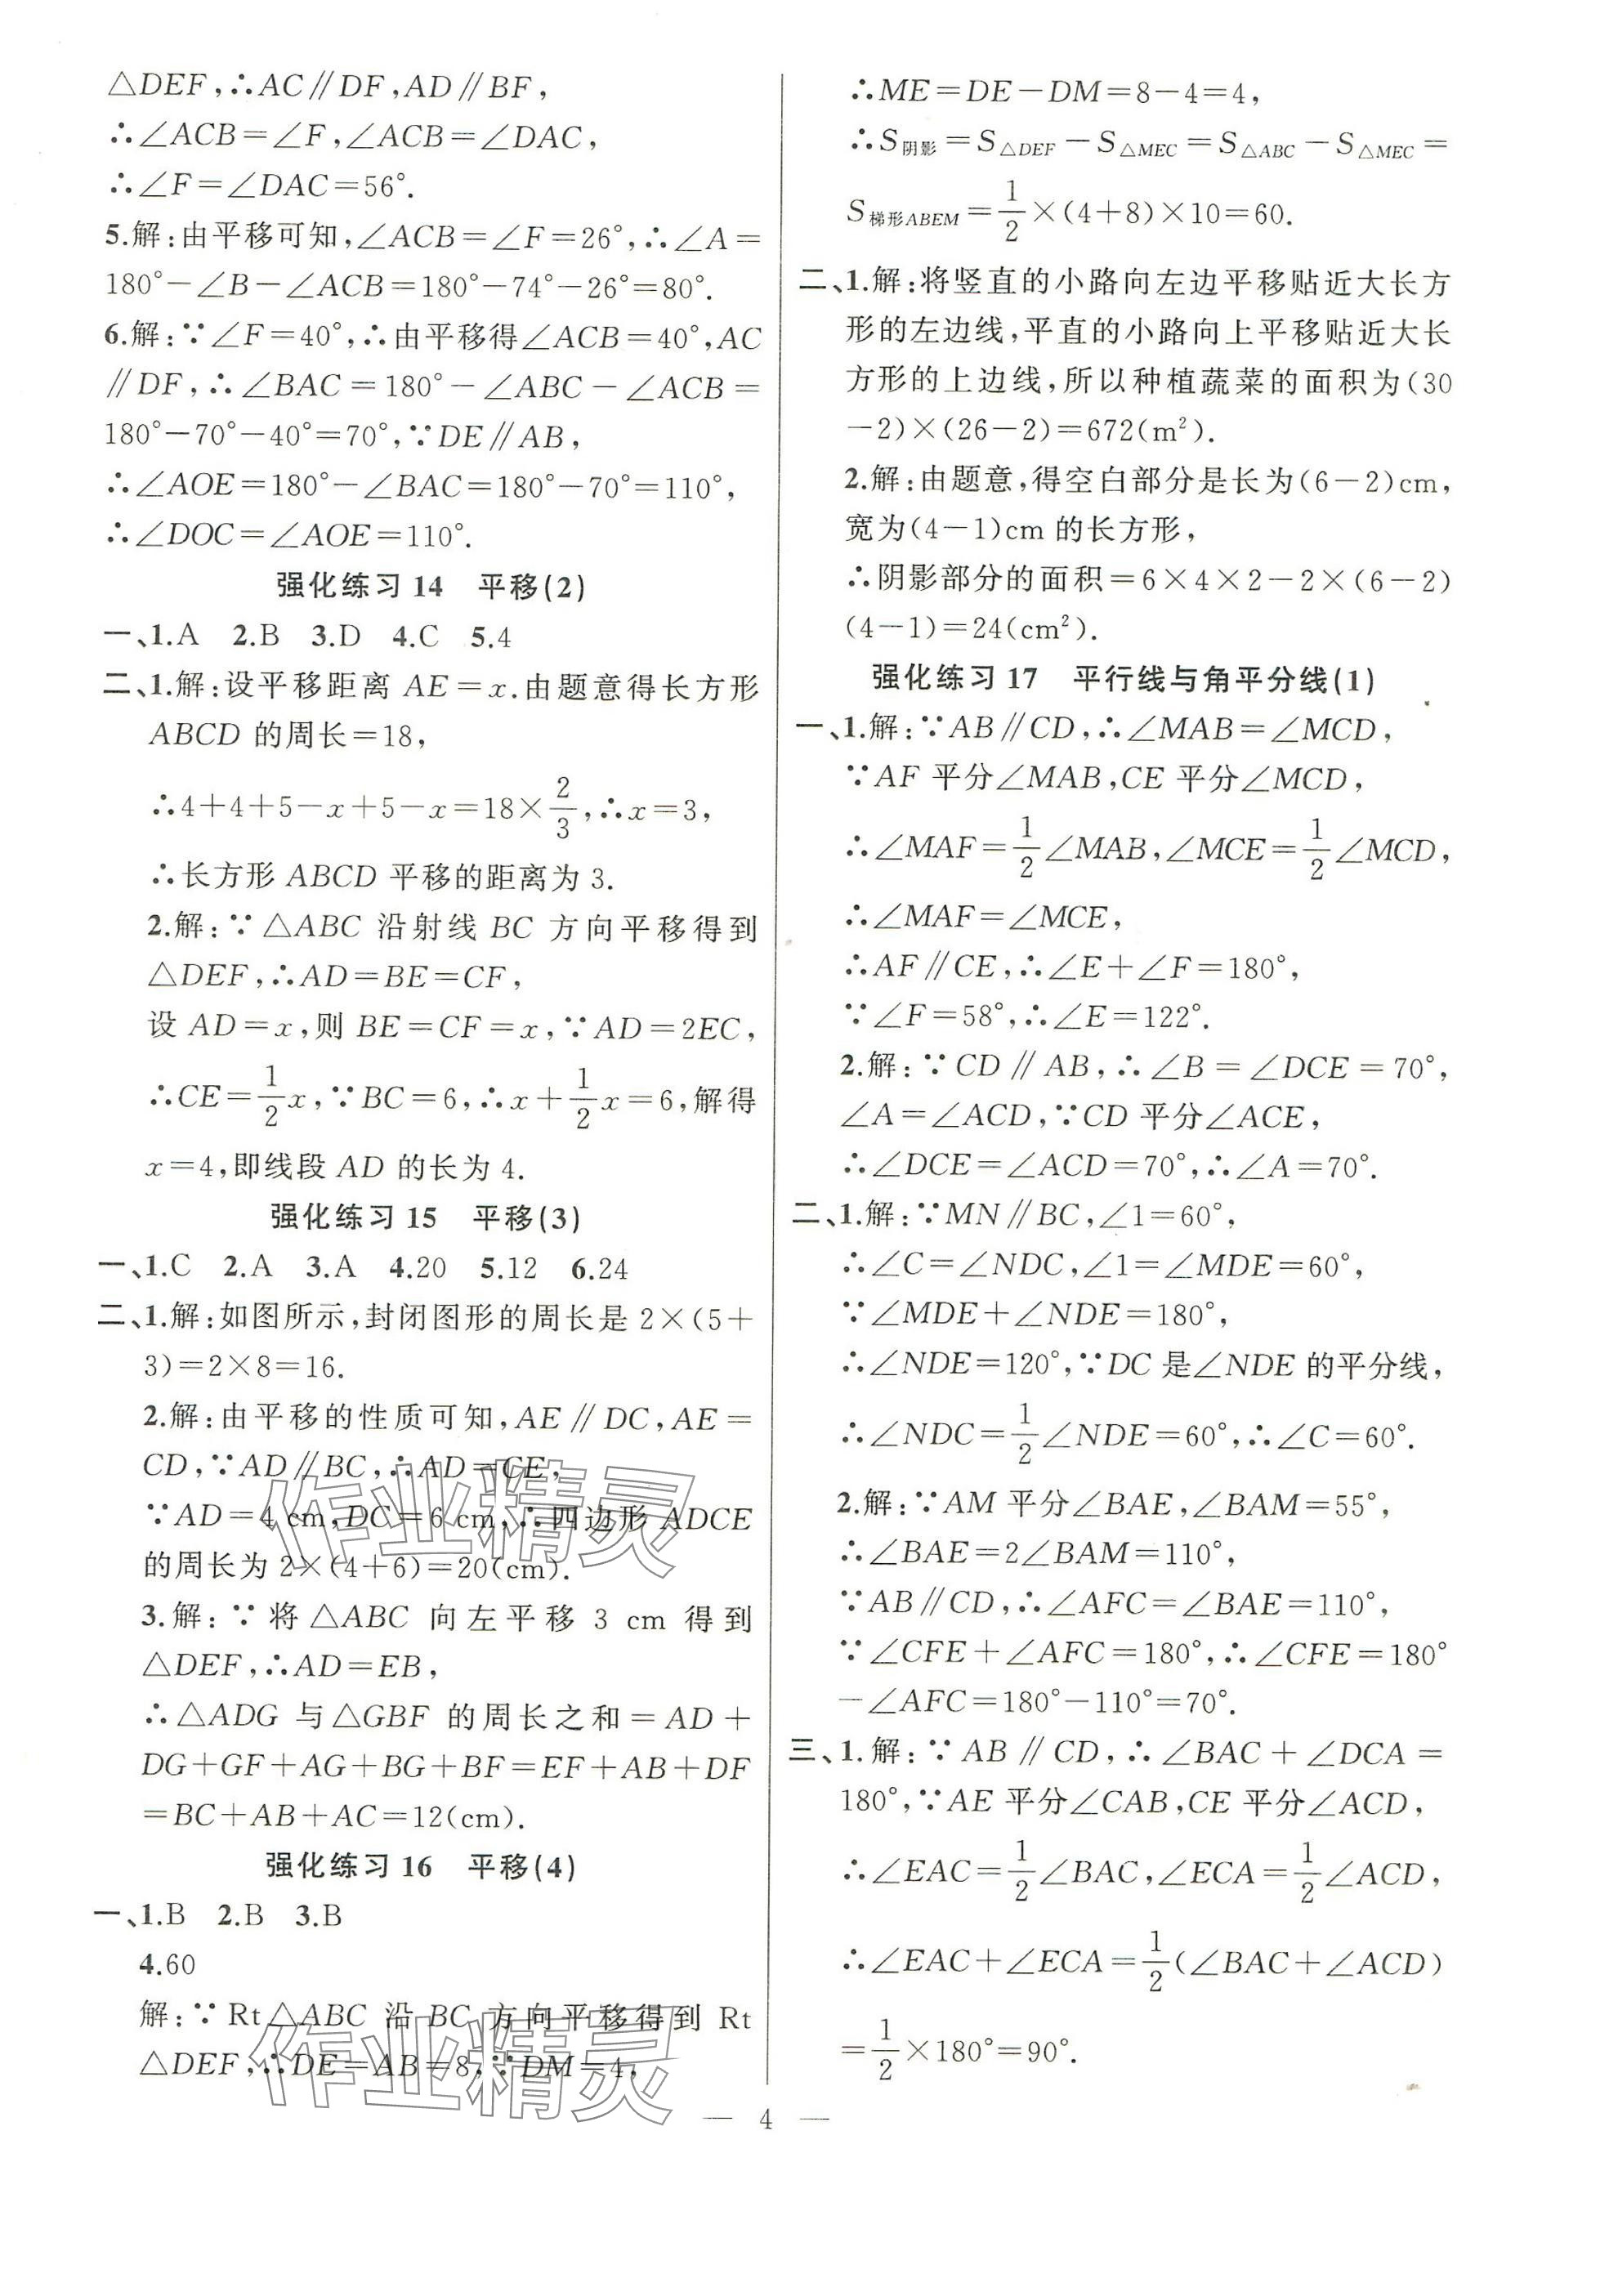 △DEF,∴AC∥DF,AD∥BF,
∴∠ACB=∠F,∠ACB=∠DAC,
∴∠F=∠DAC=56°.
5.解:由平移可知,∠ACB=∠F=26°,∴∠A=
180°-∠B-∠ACB=180°-74°-26°=80°.
6.解:∵∠F=40°,∴由平移得∠ACB=40°,AC
∥DF,∴∠BAC=180°-∠ABC-∠ACB=
180°-70°-40°=70°,∵DE∥AB,
∴∠AOE=180°-∠BAC=180°-70°=110°,
∴∠DOC=∠AOE=110°.
强化练习14 平移(2)
一、1.A 2.B 3.D 4.C 5.4
二、1.解:设平移距离 AE=x.由题意得长方形
ABCD 的周长=18,
∴4+4+5-x+5-x=18×2/3,∴x=3,
∴长方形 ABCD 平移的距离为 3.
2.解:∵△ABC 沿射线 BC 方向平移得到
△DEF,∴AD=BE=CF,
设 AD=x,则 BE=CF=x,∵AD=2EC,
∴CE=1/2x,∵BC=6,∴x+1/2x=6,解得
x=4,即线段 AD 的长为 4.
强化练习15 平移(3)
一、1.C 2.A 3.A 4.20 5.12 6.24
二、1.解:如图所示,封闭图形的周长是 2×(5+
3)=2×8=16.
2.解:由平移的性质可知,AE∥DC,AE=
CD,∵AD∥BC,∴AD=CE,
∵AD=4 cm,DC=6 cm,∴四边形 ADCE
的周长为 2×(4+6)=20(cm).
3.解:∵将△ABC 向左平移 3 cm 得到
△DEF,∴AD=EB,
∴△ADG 与△GBF 的周长之和=AD+
DG+GF+AG+BG+BF=EF+AB+DF
=BC+AB+AC=12(cm).
强化练习16 平移(4)
一、1.B 2.B 3.B
4.60
解:∵Rt△ABC 沿 BC 方向平移得到 Rt
△DEF,∴DE=AB=8,∵DM=4,
∴ME=DE-DM=8-4=4,
∴S阴影=S△DEF-S△MEC=S△ABC-S△MEC=
S梯形ABEM=1/2×(4+8)×10=60.
二、1.解:将竖直的小路向左边平移贴近大长方
形的左边线,平直的小路向上平移贴近大长
方形的上边线,所以种植蔬菜的面积为(30
-2)×(26-2)=672(m²).
2.解:由题意,得空白部分是长为(6-2)cm,
宽为(4-1)cm 的长方形,
∴阴影部分的面积=6×4×2-2×(6-2)
(4-1)=24(cm²).
强化练习17 平行线与角平分线(1)
一、1.解:∵AB∥CD,∴∠MAB=∠MCD,
∵AF 平分∠MAB,CE 平分∠MCD,
∴∠MAF=1/2∠MAB,∠MCE=1/2∠MCD,
∴∠MAF=∠MCE,
∴AF∥CE,∴∠E+∠F=180°,
∵∠F=58°,∴∠E=122°.
2.解:∵CD∥AB,∴∠B=∠DCE=70°,
∠A=∠ACD,∵CD 平分∠ACE,
∴∠DCE=∠ACD=70°,∴∠A=70°.
二、1.解:∵MN∥BC,∠1=60°,
∴∠C=∠NDC,∠1=∠MDE=60°,
∵∠MDE+∠NDE=180°,
∴∠NDE=120°,∵DC 是∠NDE 的平分线,
∴∠NDC=1/2∠NDE=60°,∴∠C=60°.
2.解:∵AM 平分∠BAE,∠BAM=55°,
∴∠BAE=2∠BAM=110°,
∵AB∥CD,∴∠AFC=∠BAE=110°,
∵∠CFE+∠AFC=180°,∴∠CFE=180°
-∠AFC=180°-110°=70°.
三、1.解:∵AB∥CD,∴∠BAC+∠DCA=
180°,∵AE 平分∠CAB,CE 平分∠ACD,
∴∠EAC=1/2∠BAC,∠ECA=1/2∠ACD,
∴∠EAC+∠ECA=1/2(∠BAC+∠ACD)
=1/2×180°=90°.
— 4 —
作业精灵
作业精灵